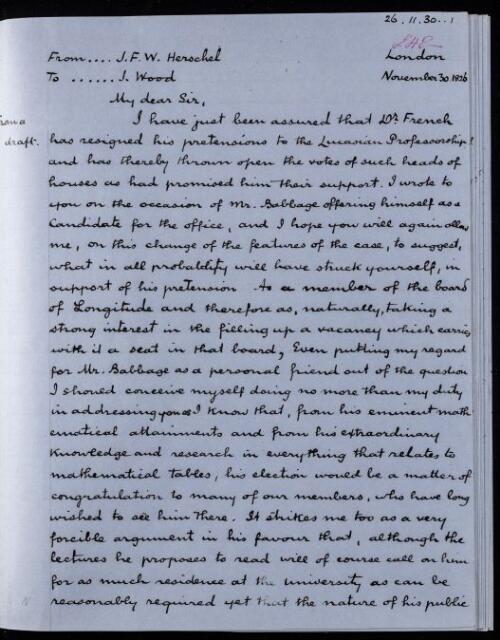 26.11.30..1
From.... J.F.W. Herschel
London
To ...... J. Wood
November 30 1826
My dear Sir,
I have just been assured that Dr. French
from a
draft.
has resigned his pretensions to the Lucasian Professorship
and has thereby thrown open the votes of such heads of
houses as had promised him their support. I wrote to
you on the occasion of Mr. Babbage offering himself as a
Candidate for the office, and I hope you will again allow
me, on this change of the features of the case, to suggest,
what in all probability will have struck yourself, in
support of his pretension As a member of the board
of Longitude and therefore as, naturally, taking a
strong interest in the filling up a vacancy which carries
with it a seat in that board, Even putting my regard
for Mr. Babbage as a personal friend out of the question
I should conceive myself doing no more than my duty
in addressing you as I know that, from his eminent math
ematical attainments and from his extraordinary
knowledge and research in everything that relates to
mathematical tables, his election would be a matter of
congratulation to many of our members, who have long
wished to see him there. It strikes me too as a very
forcible argument in his favour that, although the
lectures he proposes to read will of course call on him
for as much residence at the university as can be
reasonably required yet that the nature of his public